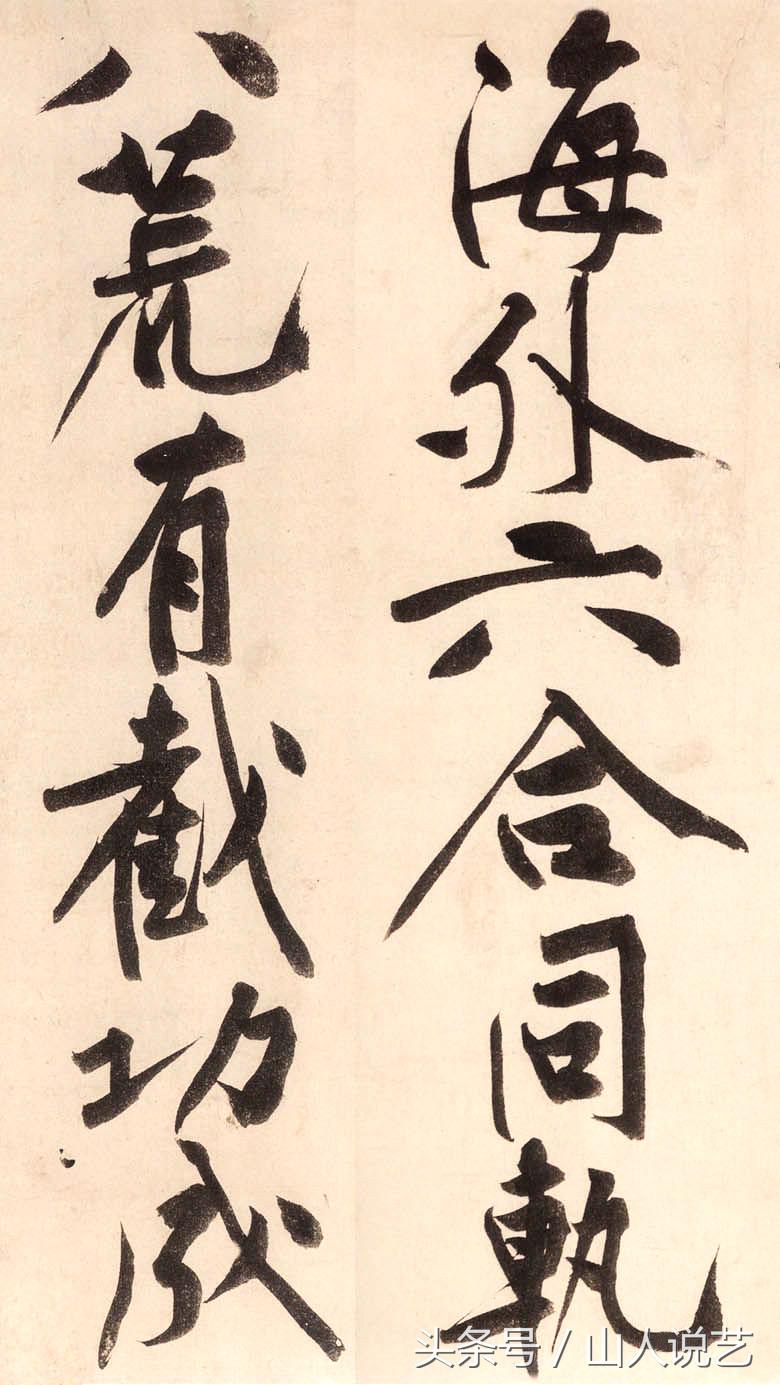 海外六合同軌
八荒有截功成
头条号 / 山人说艺